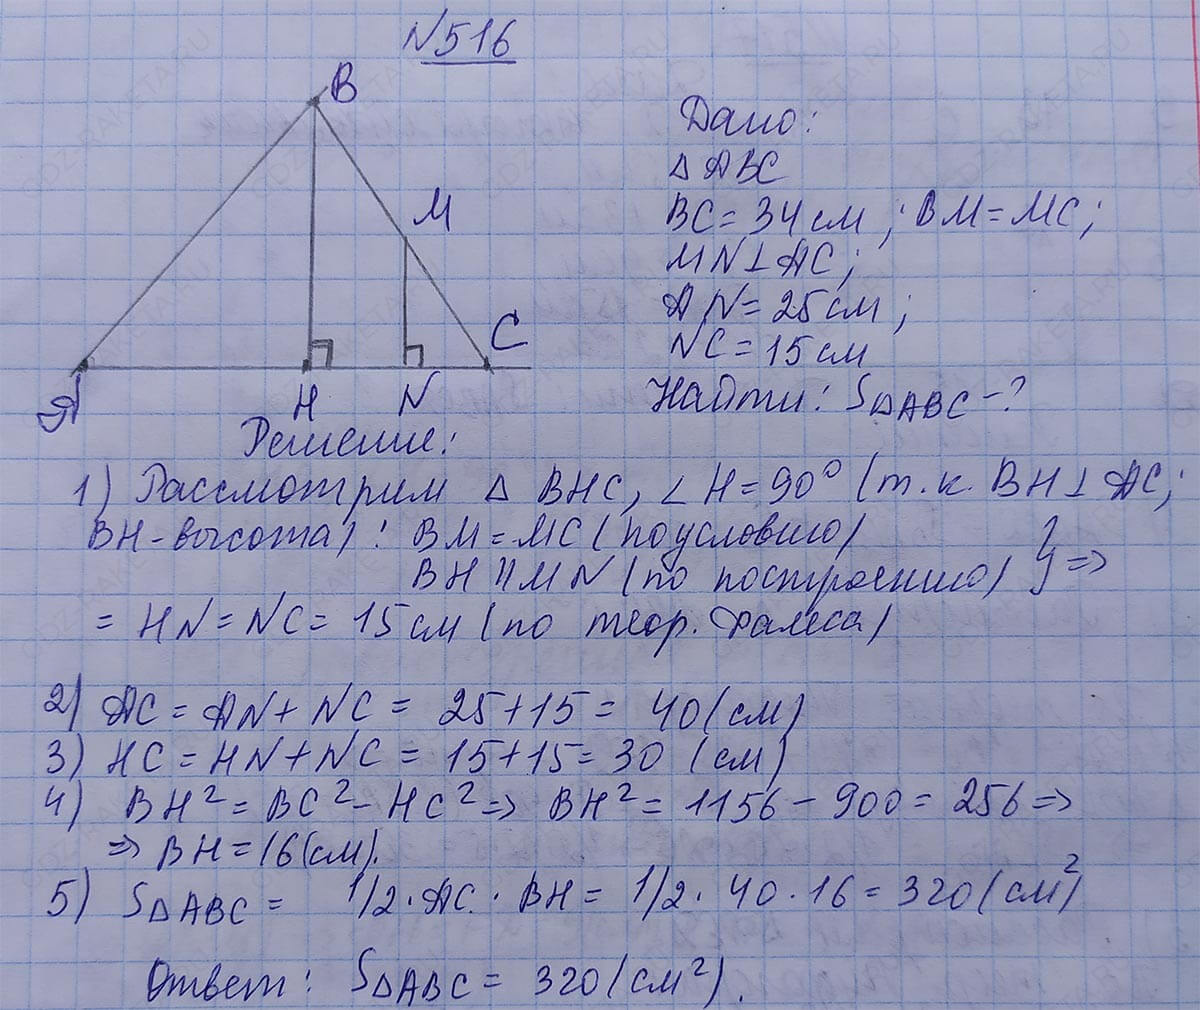 N516
B
M
C
A
H
N
Дано:
△ ABC
BC = 34 см ; BM = MC;
MN ⊥ AC;
AN = 25 см ;
NC = 15 см
Найти: S△ABC - ?
Решение:
1) Рассмотрим △ BHC, ∠H = 90° (т.к. BH ⊥ AC;
BH - высота) : BM = MC (по условию)
BH || MN (по построению) } =>
= HN = NC = 15 см (по теор. Фалеса)
2) AC = AN + NC = 25 + 15 = 40 (см)
3) HC = HN + NC = 15 + 15 = 30 (см)
4) BH² = BC² - HC² => BH² = 1156 - 900 = 256 =>
=> BH = 16 (см).
5) S△ABC = 1/2 · AC · BH = 1/2 · 40 · 16 = 320 (см²)
Ответ: S△ABC = 320 (см²).